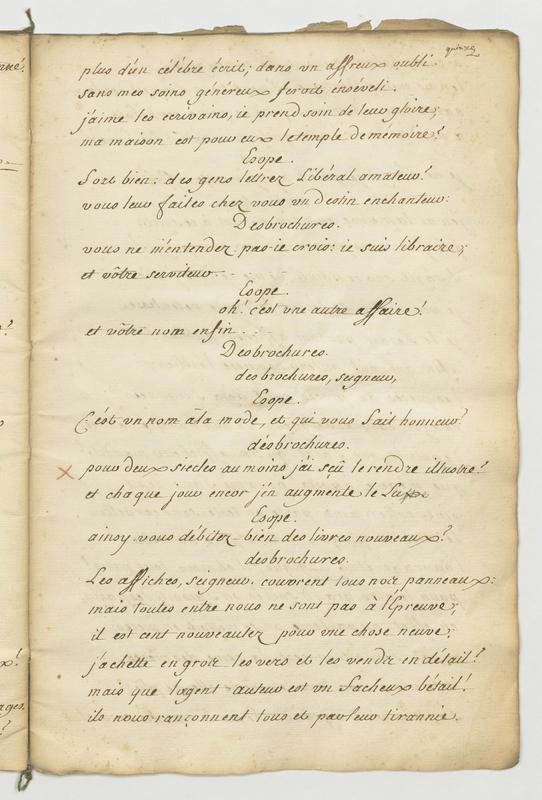 quinze
plus d'un célébre écrit; dans un affreux oubli
sans mes soins généreux seroit énséveli.
j'aime les ecrivains, ie prend soin de leur gloire;
ma maison est pour eux le temple de mémoire!
Esope.
fort bien: des gens lettrez Libéral amateur!
vous leur faites chez vous un destin enchanteur:
Desbrochures.
vous ne m'entendez pas ie crois: ie suis libraire;
et vôtre serviteur . -
Esope.
oh! c'est une autre affaire!
et vôtre nom enfin . . .
Desbrochures.
desbrochures, seigneur,
Esope.
C'est un nom à la mode, et qui vous fait honneur!
désbrochures.
pour deux siecles au moins j'ai sçû le rendre illustre!
et chaque jour encor j'en augmente le
Esope.
ainsy vous débitez bien des livres nouveaux?
desbrochures.
Les affiches, seigneur, couvrent tous nos panneaux:
mais toutes entre nous ne sont pas à l'Épreuve;
il est cent nouveautez pour une chose neuve;
j'achette en gros les vers et les vendz en détail!
mais que l'argent auteur est un facheux bétail!
ils nous rançonnent tous et par leur tirannie.